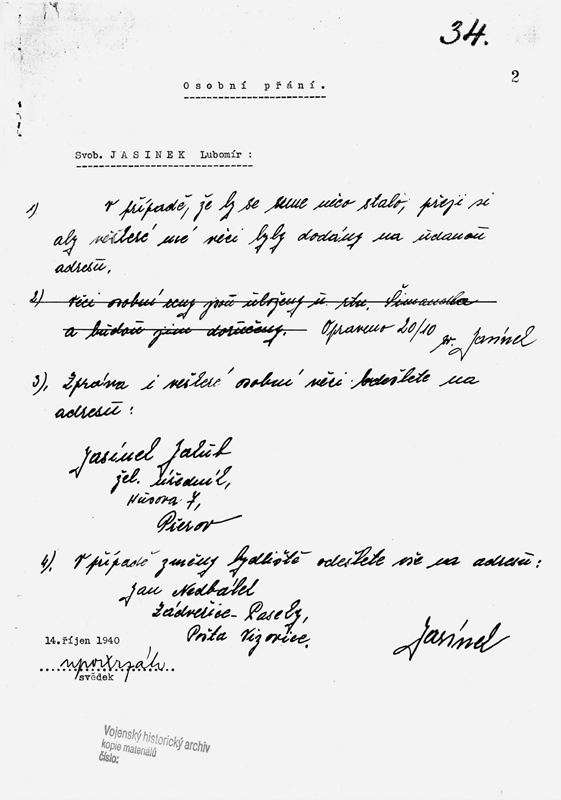 34.
2
Osobní přání.
Svob. JASINEK Lubomír:
1) V případě, že by se mne něco stalo, přeji si
aby veškeré mé věci byly dodány na udanou
adresu.
2) Věci osobní ceny jsou uloženy u rtn. Šimandla
a budou jim doručeny. Opraveno 20/10
sv. Jasínek
3). Zpráva i veškeré osobní věci odešlete na
adresu:
Jasínek Jakub
žel. úředník,
Husova 7,
Přerov
4). V případě změny bydliště odešlete vše na adresu:
Jan Nedbálek
Zádveřice-Paseky,
Pošta Vizovice.
Jasínek
14.říjen 1940
svědek
Vojenský historický archiv
kopie materiálů
číslo: